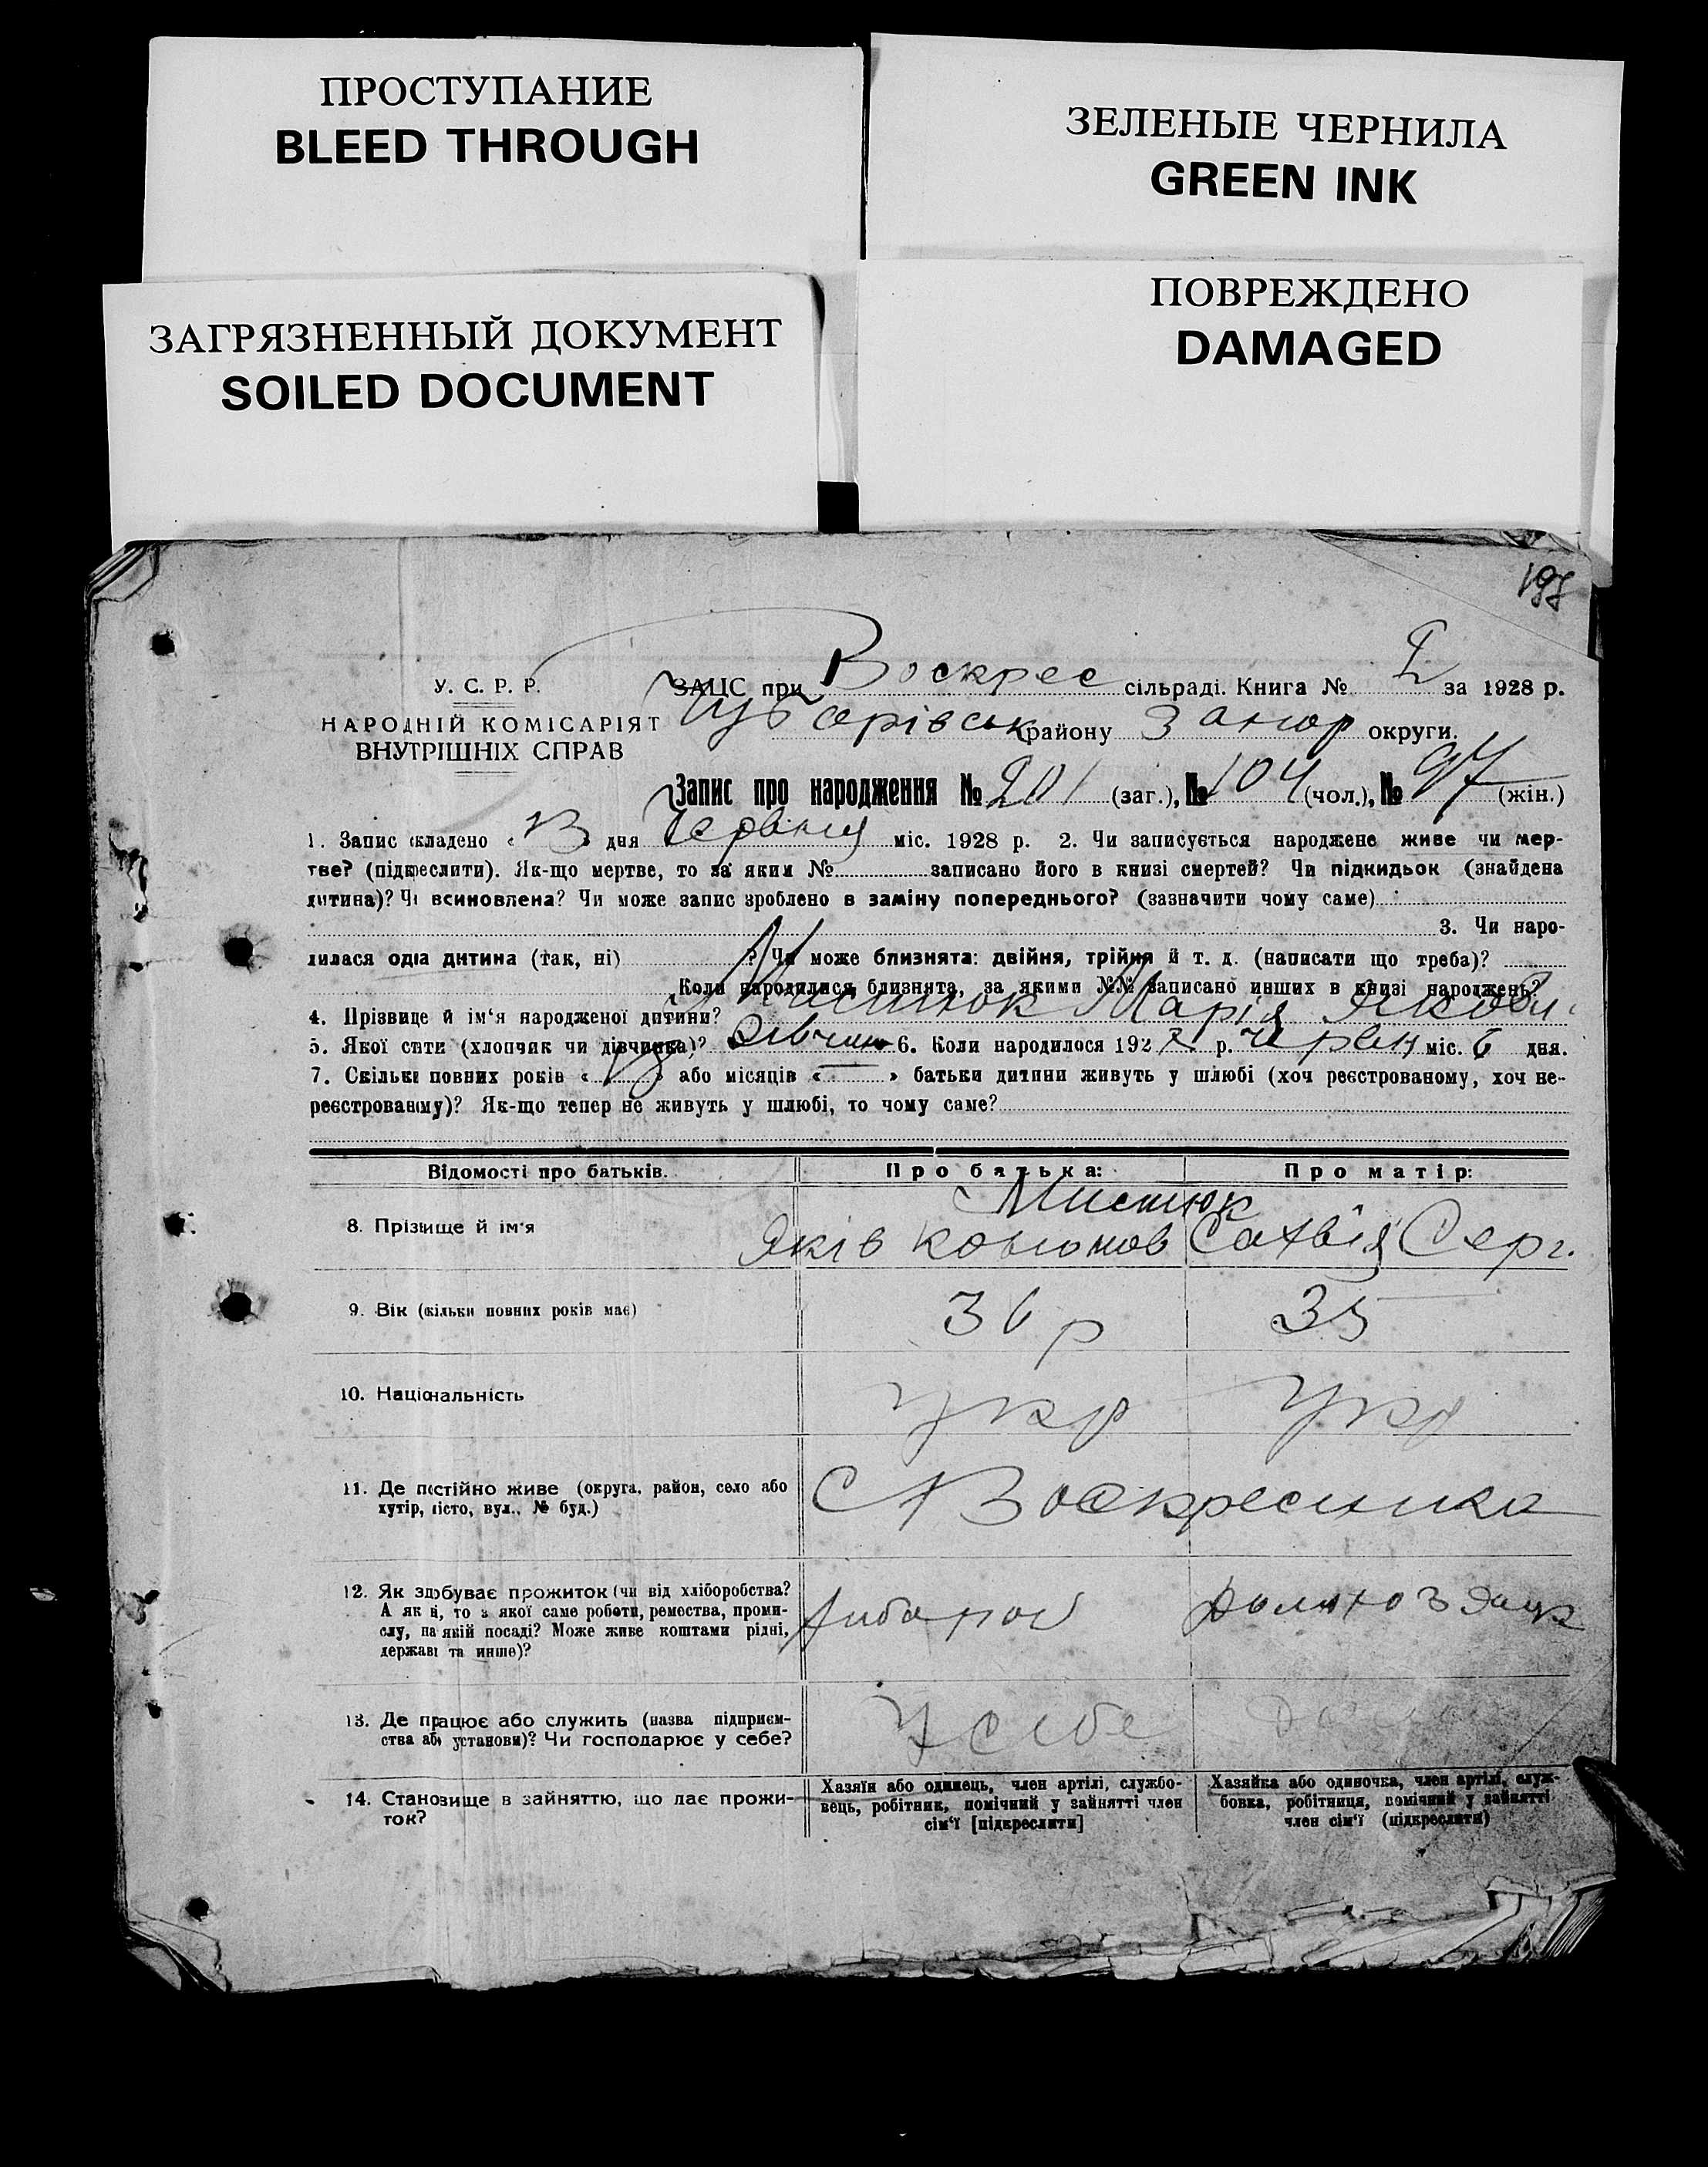 ПРОСТУПАНИЕ
BLEED THROUGH
ЗЕЛЕНЫЕ ЧЕРНИЛА
GREEN INK
ЗАГРЯЗНЕННЫЙ ДОКУМЕНТ
SOILED DOCUMENT
ПОВРЕЖДЕНО
DAMAGED
У. С. Р. Р.
НАРОДНІЙ КОМІСАРІЯТ
ВНУТРІШНІХ СПРАВ
ЗАЦС при Воскрес сільраді. Книга № I за 1928 р.
району Запор округи.
Запис про народження № 201 (заг.), № 104 (чол.), № 97 (жін.)
1. Запис складено « 13 » дня Червня міс. 1928 р. 2. Чи записується народжене живе чи мер-
тве? (підкреслити). Як-що мертве, то за яким № записано його в книзі смертей? Чи підкидьок (знайдена
дитина)? Чи всиновлена? Чи може запис зроблено в заміну попереднього? (зазначити чому саме)
3. Чи наро-
дилася одна дитина (так, ні) ? Чи може близнята: двійня, трійня й т. д. (написати що треба)?
Коли народилися близнята, за якими №№ записано инших в книзі народжень?
4. Прізвище й ім'я народженої дитини? Мистюк Марія Яковл
5. Якої стати (хлопчик чи дівчинка)? Дівчин 6. Коли народилося 192 р. червн міс. 6 дня.
7. Скільки повних років « 13 » або місяців « — » батьки дитини живуть у шлюбі (хоч реєстрованому, хоч не-
реєстрованому)? Як-що тепер не живуть у шлюбі, то чому саме?
Відомості про батьків. Про батька: Про матір:
Мистюк
8. Прізвище й ім'я Яків Софія Серг.
9. Вік (скільки повних років має) 36 р 35
10. Національність Укр Укр
11. Де постійно живе (округа, район, село або С Воскресенка
хутір, місто, вул., № буд.)
12. Як здобуває прожиток (чи від хліборобства?
А як ні, то з якої саме роботи, ремества, проми-
слу, на якій посаді? Може живе коштами рідні,
держави та инше)?
13. Де працює або служить (назва підприєм- У себе
ства або установи)? Чи господарює у себе?
14. Становище в зайняттю, що дає прожи-
ток?
Хазяїн або одинець, член артілі, службо-
вець, робітник, помічний у зайнятті член
сім'ї [підкреслити]
Хазяйка або одиночка, член артілі, служ-
бовка, робітниця, помічний у зайнятті
член сім'ї (підкреслити)